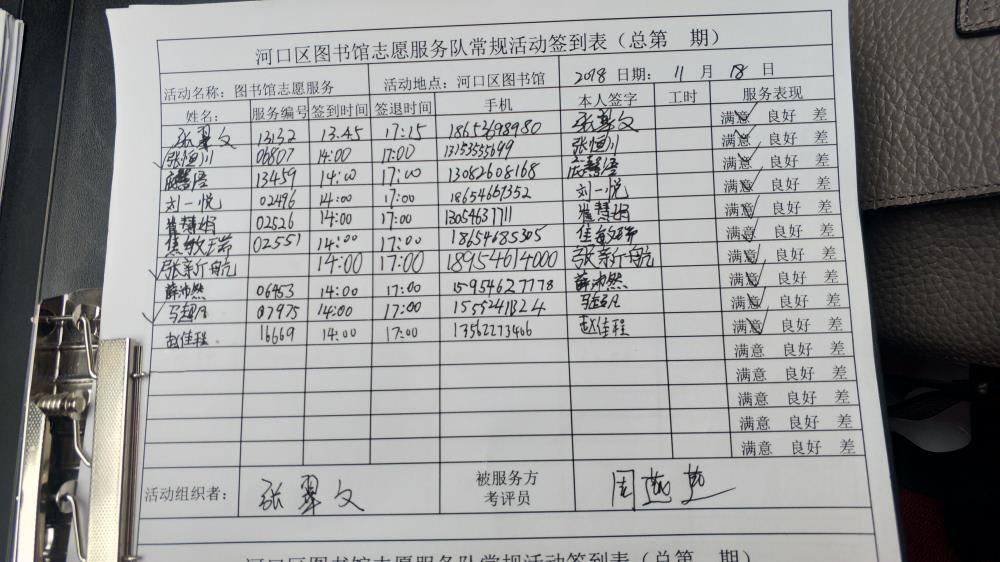 河口区图书馆志愿服务队常规活动签到表（总第 期）
活动名称：图书馆志愿服务 活动地点：河口区图书馆 2018 日期： 11 月 18 日
姓名： 服务编号 签到时间 签退时间 手机 本人签字 工时 服务表现
张翠文 13132 13:45 17:15 18653698980 张翠文 满意 良好 差
张恒川 06807 14:00 17:00 13153535699 张恒川 满意 良好 差
13459 14:00 17:00 13082608168 满意 良好 差
刘一悦 02496 14:00 17:00 18654667352 刘一悦 满意 良好 差
崔慧娟 02526 14:00 17:00 13054637711 崔慧娟 满意 良好 差
02551 14:00 17:00 18654685305 满意 良好 差
张新航 14:00 17:00 18954614000 张新航 满意 良好 差
薛沛然 06953 14:00 17:00 15954627778 薛沛然 满意 良好 差
07975 14:00 17:00 满意 良好 差
赵佳程 16669 14:00 17:00 13562273466 赵佳程 满意 良好 差
满意 良好 差
满意 良好 差
满意 良好 差
满意 良好 差
满意 良好 差
活动组织者： 张翠文 被服务方考评员 周
河口区图书馆志愿服务队常规活动签到表（总第 期）